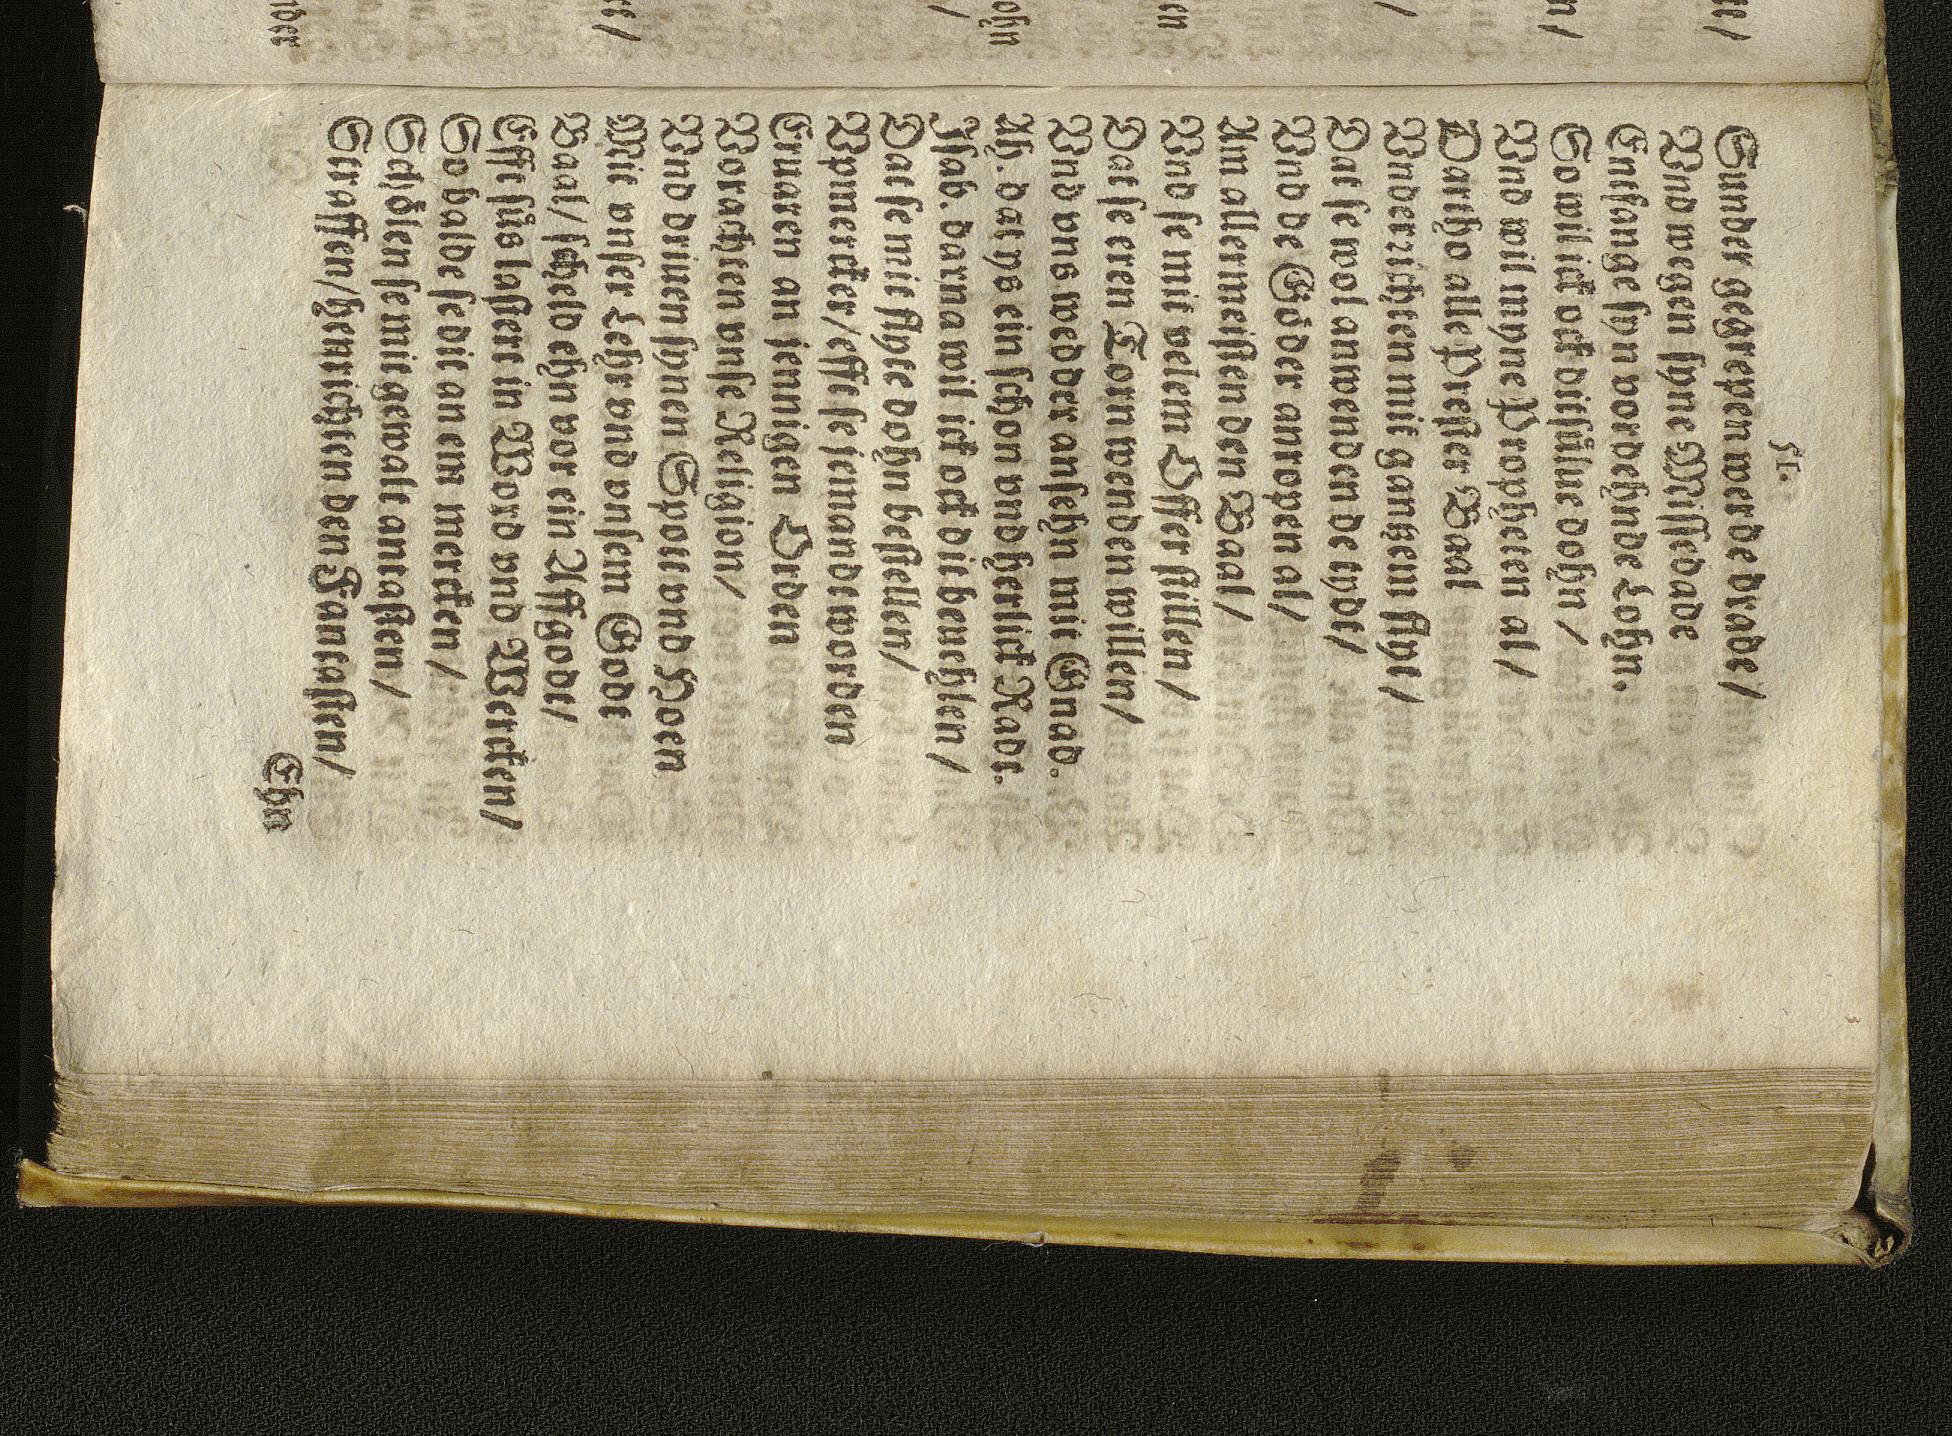 Sunder gegrepen werde drade/
Vnd wegen syne Missedade
Entfange syn vordehnde Lohn.
So wil ick ock ditsülue dohn/
Vnd wil myne Propheten al/
Dartho alle Prester Baal
Vnderrichten mit gantzem flyt/
Dat se wol anwenden de tydt/
Vnd de Göder anropen al/
Am allermeisten den Baal/
Vnd se mit velem Offer stillen/
Dat se eren Torn wenden willen/
Vnd vns wedder ansehn mit Gnad.
Ah. dat ys ein schon vnd herlick Radt.
Jsab. darna wil ick ock dit beuehlen/
Dat se mit flyte dohn bestellen/
Vpmercker/ efft se jemande worden
Eruaren an jennigen Orden
Vorachten vnse Religion/
Vnd driuen synen Spott vnd Hoen
Mit vnser Lehr vnd vnsem Gode
Baal/ scheld ehn vor ein Affgodt/
Efft süs lastert in Word vnd Wercken/
So balde se dit an em mercken/
Schölen se mit gewalt antasten/
Straffen/ henrichten den Fantasten/
Ehn